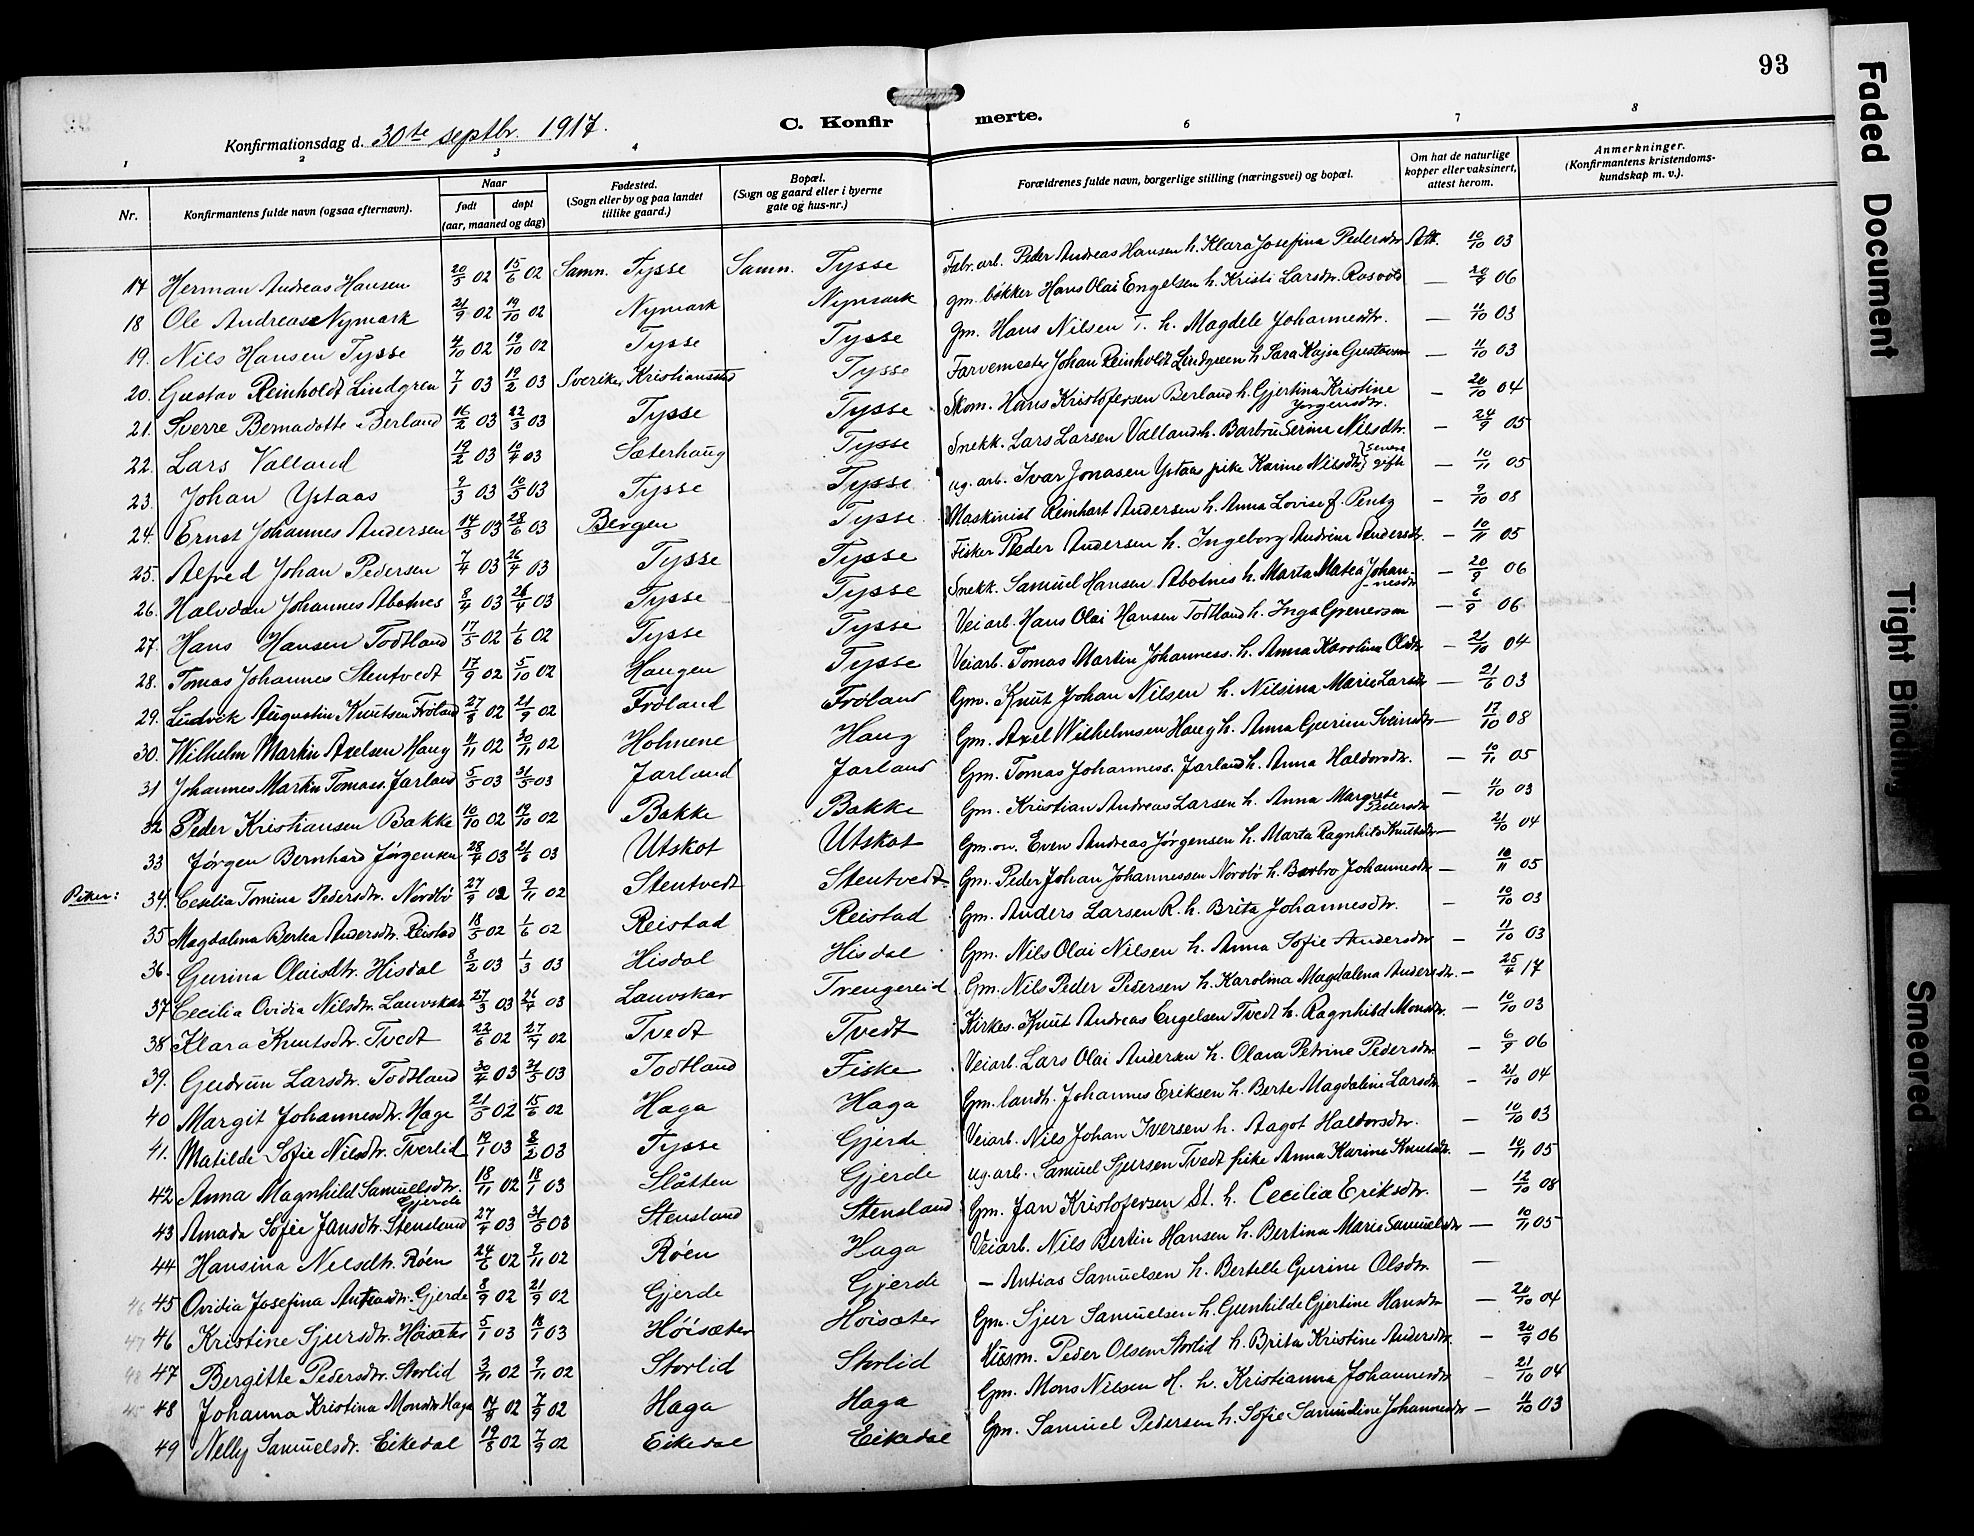 93
Konfirmationsdag d. 30te septbr. 1917.
C. Konfirmerte.
1 2 3 4 6 7 8
Nr. | Konfirmantens fulde navn (ogsaa efternavn). | Naar født døpt (aar, maaned og dag) | Fødested. (Sogn eller by og paa landet tillike gaard.) | Bopæl. (Sogn og gaard eller i byerne gate og hus-nr.) | Forældrenes fulde navn, borgerlige stilling (næringsvei) og bopæl. | Om hat de naturlige kopper eller vaksinert, attest herom. | Anmerkninger. (Konfirmantens kristendoms-kundskap m. v.).
17 Herman Andreas Hansen 20/5 02 15/6 02 Samn. Tysse Samn. Tysse Fabr. arb. Peder Andreas Hansen h. Klara Josefina Pedersdtr. Att. 10/10 03
18 Ole Andreas Nymark 21/9 02 19/10 02 Nymark Nymark gm. bøkker Hans Olai Engelsen h. Kristi Larsdtr. — 20/9 06
19. Nils Hansen Tysse 4/10 02 19/10 02 Tysse Tysse Gm. Hans Nilsen T. h. Magdele Johannesdtr. — 11/10 03
20. Gustav Reinholdt Lindgren 7/1 03 19/2 03 Sverike, Kristianstad Tysse Farvemester Johan Reinholdt Lindgreen h. Sara Kajsa — 11/10 03
21. Sverre Bernadotte Berland 16/2 03 22/3 03 Tysse Tysse Skom. Hans Kristofersen Berland h. Gjertina Kristine Jørgensdtr. — 20/10 04
22. Lars Valland 19/2 03 10/4 03 Sæterhaug Tysse Snekk. Lars Larsen Valland h. Barbru Serina Nilsdtr. — 24/9 05
23. Johan Ystaas 9/3 03 10/5 03 Tysse Tysse ug. arb. Ivar Jonasen Ystaas pike Karine Nilsdtr. (senere gift) — 10/11 05
24. Ernst Johannes Andersen 14/3 03 28/6 03 Bergen Tysse Maskinist Reinhart Andersen h. Anna Lovise f. Pentz — 9/10 08
25. Alfred Johan Pedersen 7/4 03 26/4 03 Tysse Tysse Fisker Peder Andersen h. Ingeborg Andrine Andersdtr. — 10/11 05
26. Halvdan Johannes Abotnes 8/4 03 26/4 03 Tysse Tysse Snekk. Samuel Hansen Abotnes h. Marta Matea Johannesdtr — 20/9 06
27. Hans Hansen Todtland 17/5 02 1/6 02 Tysse Tysse Veiarb. Hans Olai Hansen Todtland h. Inga — 6/9 06
28. Tomas Johannes Stentvedt 17/9 02 5/10 02 Haugen Tysse Veiarb. Tomas Martin Johanness. h. Anna Karolina Olsdtr — 21/10 04
29. Ludvik Augustin Knutsen Frøland 27/8 02 21/9 02 Frøland Frøland Gm. Knut Johan Nilsen h. Nilsina Marie Larsdtr — 21/6 03
30. Wilhelm Martin Axelsen Haug 11/11 02 30/11 02 Holmene Haug Gm. Axel Wilhelmsen Haug h. Anna Gurine Sveinsdtr — 17/10 08
31 Johannes Martin Tomass. Jarland 5/5 03 31/5 03 Jarland Jarland Gm. Tomas Johanness. Jarland h. Anna Haldorsdtr. — 10/11 05
32 Peder Kristiansen Bakke 10/10 02 19/10 02 Bakke Bakke Gm. Kristian Andreas Larsen h. Anna Margrete Pedersdtr — 11/10 03
33 Jørgen Bernhard Jørgensen 28/4 03 21/6 03 Utskot Utskot Gm. Even Andreas Jørgensen h. Marta Ragnhild Knutsdtr — 21/10 04
Piker: 34. Cecilia Tomina Pedersdtr. Nordbø 27/9 02 9/11 02 Stentvedt Stentvedt Gm. Peder Johan Johannessen Nordbø h. Barbro Johannesdtr — 10/11 05
35 Magdalena Bertea Andersdtr. Reistad 18/5 02 1/6 02 Reistad Reistad Gm. Anders Larsen R. h. Brita Johannesdtr. — 10/10 03
36. Gurina Olaisdtr. Hisdal 8/2 03 1/3 03 Hisdal Hisdal Gm. Nils Olai Nilsen h. Anna Sofie Andersdtr — 11/10 03
37 Cecilia Ovidia Nilsdtr. Lauvskar 27/3 03 26/4 03 Lauvskar Trengereid Gm. Nils Peder Pedersen h. Karolina Magdalena Andersdtr. — 25/4 17
38 Klara Knutsdtr. Tvedt 22/6 02 27/7 02 Tvedt Tvedt Kirkes. Knut Andreas Engelsen Tvedt h. Ragnhild Monsdtr. — 10/10 03
39. Gudrun Larsdtr. Todtland 30/4 03 31/5 03 Todtland Fiske Veiarb. Lars Olai Andersen h. Olava Petrine Pedersdtr. — 6/9 06
40 Margit Johannesdtr. Hage 21/5 02 15/6 02 Haga Haga Gm. landh. Johannes Eriksen h. Berte Magdalene Larsdtr. — 21/10 04
41. Matilde Sofie Nilsdtr. Tverlid 19/1 03 8/2 03 Tysse Gjerde Veiarb. Nils Johan Iversen h. Aagot Haldorsdtr. — 10/10 03
42 Anna Magnhild Samuelsdtr. Gjerde 18/11 02 18/1 03 Slåtten Gjerde ug. arb. Samuel Sjursen Tvedt pike Anna Karine Knutsdtr. — 10/11 05
43 Amada Sofie Jansdtr. Stensland 27/4 03 31/5 03 Stensland Stensland Gm. Jan Kristofersen St. h. Cecilia Eriksdtr. — 12/10 08
44 Hansina Nilsdtr. Røen 24/6 02 9/11 02 Røen Haga Veiarb. Nils Bertin Hansen h. Bertina Marie Samuelsdtr — 10/11 05
46 45 Ovidia Josefina Antiasdtr. Gjerde 8/9 02 21/9 02 Gjerde Gjerde — Antias Samuelsen h. Bertelle Gurine Olsdtr. —
47 46 Kristine Sjursdtr. Høisæter 5/1 03 18/1 03 Høisæter Høisæter Gm. Sjur Samuelsen h. Gunhilde Gjertine Hansdtr — 20/10 04
48 47 Bergitte Pedersdtr. Storlid 3/11 02 9/11 02 Storlid Storlid Husm. Peder Olsen Storlid h. Brita Kristine Andersdtr. — 20/9 06
45 48 Johanna Kristina Monsdtr Haga 17/8 02 7/9 02 Haga Haga Gm. Mons Nilsen H. h. Kristianna Johannesdtr — 21/10 04
49 Nelly Samuelsdtr. Eikedal 19/8 02 7/9 02 Eikedal Eikedal Gm. Samuel Pedersen h. Sofie Samudine Johannesdtr — 11/10 03
Faded Document
Tight Binding
Smeared